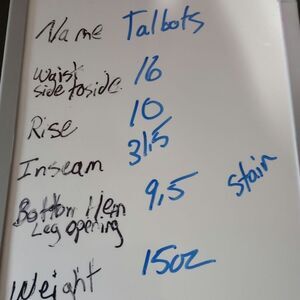 Name Talbots
Waist 16
side to side
Rise 10
Inseam 31.5
Bottom Hem 9.5 stain
Leg opening
Weight 15oz